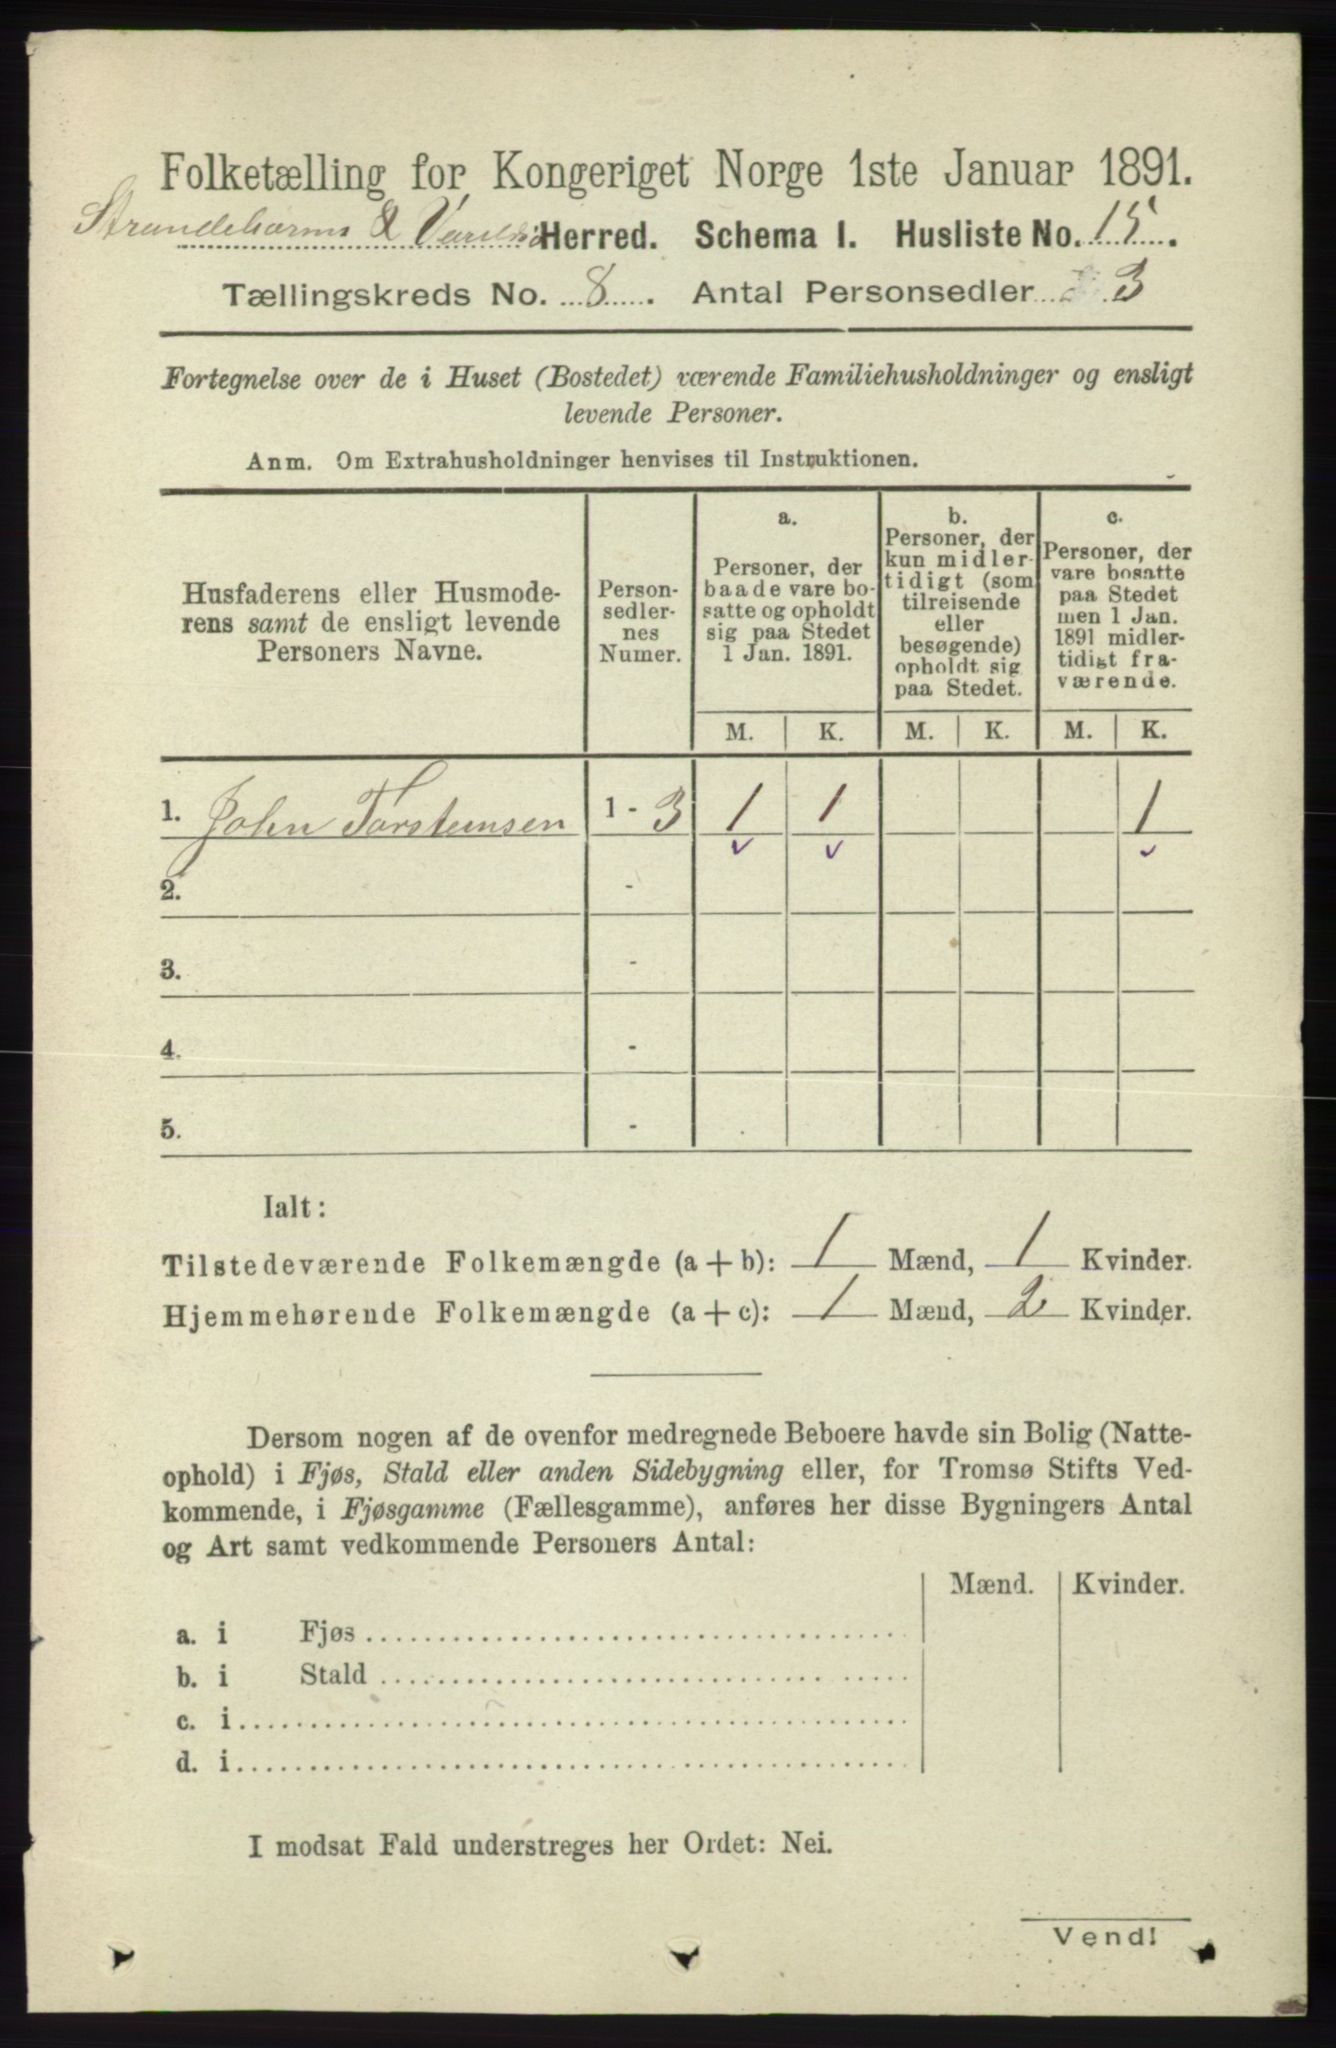 Folketælling for Kongeriget Norge 1ste Januar 1891.
Strandebarms & Varaldsø Herred. Schema I. Husliste No. 15.
Tællingskreds No. 8. Antal Personsedler 3
Fortegnelse over de i Huset (Bostedet) værende Familiehusholdninger og ensligt
levende Personer.
Anm. Om Extrahusholdninger henvises til Instruktionen.
Husfaderens eller Husmode-
rens samt de ensligt levende
Personers Navne.
Person-
sedler-
nes
Numer.
a.
Personer, der
baade vare bo-
satte og opholdt
sig paa Stedet
1 Jan. 1891.
b.
Personer, der
kun midler-
tidigt (som
tilreisende
eller
besøgende)
opholdt sig
paa Stedet.
c.
Personer, der
vare bosatte
paa Stedet
men 1 Jan.
1891 midler-
tidigt fra-
værende.
M. K. M. K. M. K.
1. John Torsteinsen 1 - 3 1 1 1
2. -
3. -
4. -
5. -
Ialt:
Tilstedeværende Folkemængde (a + b): 1 Mænd, 1 Kvinder.
Hjemmehørende Folkemængde (a + c): 1 Mænd, 2 Kvinder.
Dersom nogen af de ovenfor medregnede Beboere havde sin Bolig (Natte-
ophold) i Fjøs, Stald eller anden Sidebygning eller, for Tromsø Stifts Ved-
kommende, i Fjøsgamme (Fællesgamme), anføres her disse Bygningers Antal
og Art samt vedkommende Personers Antal:
Mænd. Kvinder.
a. i Fjøs
b. i Stald
c. i
d. i
I modsat Fald understreges her Ordet: Nei.
Vend!